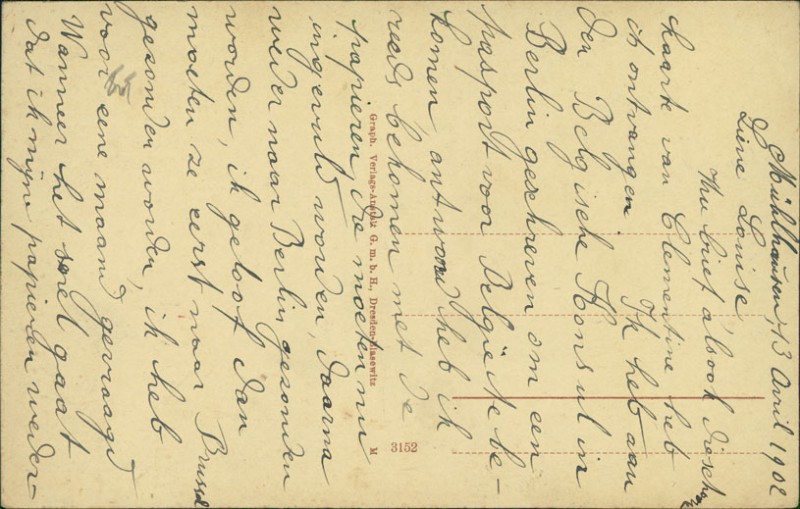 Mühlhausen, 13 April 1902
Lieve Louise
Uw brief alsook drie
kaarte van Clementine heb
ik ontvangen Ik heb aan
den Belgische Konsul in
Berlin geschreven om een
paspoort voor België te be-
komen antwoord heb ik
reeds bekomen met de
papieren, die moeten nu
ingevuld worden, daarna
weder naar Berlin gezonden
worden, ik geloof dan
moeten ze eerst naar Brussel
gezonden worden, ik heb
voor eene maand gevraagd
Wanneer het snel gaat
dat ik mijne papieren weder-
Graph. Verlags-Anstalt G. m. b. H., Dresden-Blasewitz
M
3152